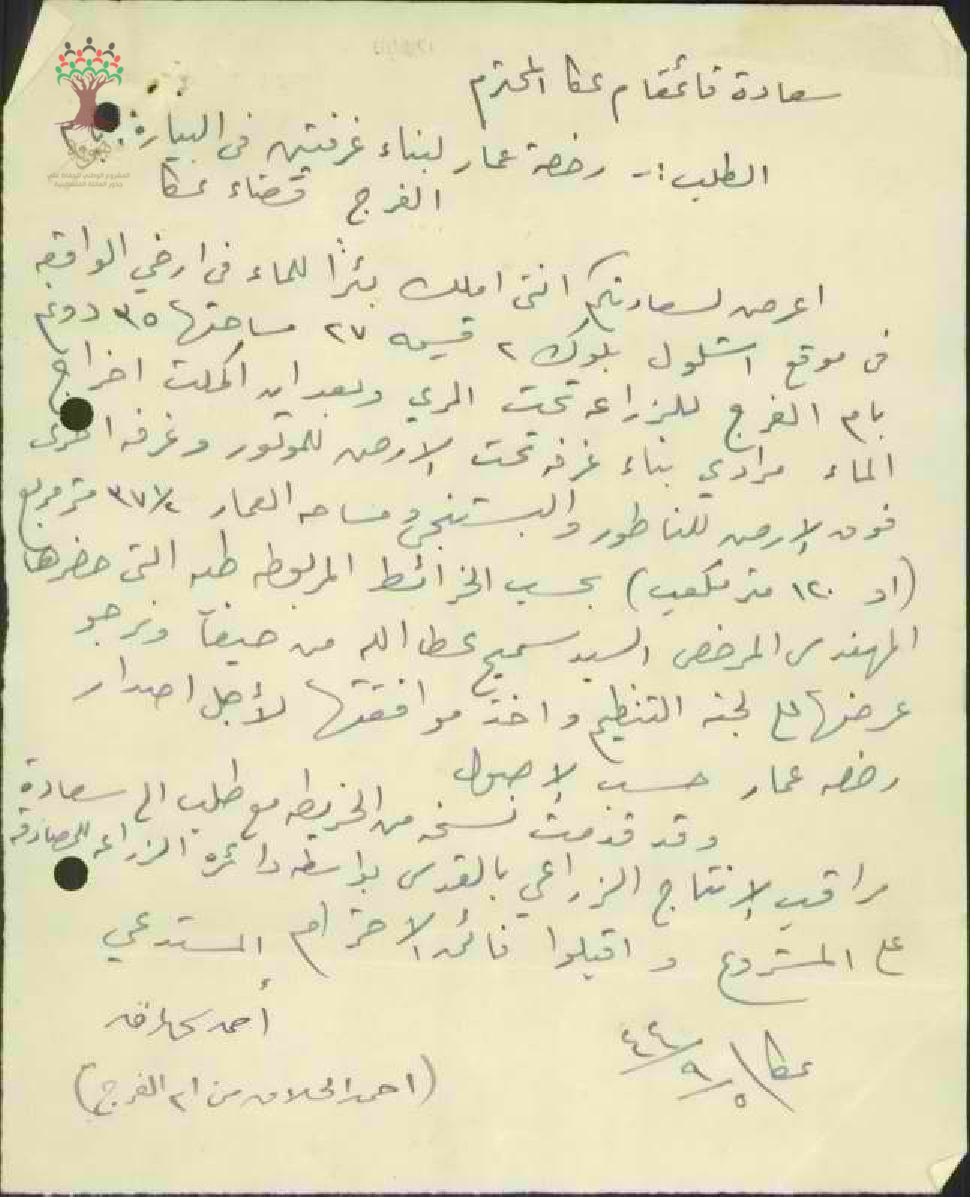 سعادة قائمقام عكا المحترم
الطلب :- رخصة عمار لبناء غرفتين في البيارة بام
الفرج قضاء عكا
اعرض لسعادتكم انني املك بئراً للماء في ارضي الواقعه
في موقع اشلول بلوك ٢ قسيمه ٢٧ مساحتها ٣٥ دونم
بام الفرج للزراعه تحت الري وبعد ان اكملت اخراج
الماء مرادي بناء غرفه تحت الارض للموتور وغرفه اخرى
فوق الارض للناطور والبستنجي ومساحه العمار ٣٧١/٢ متر مربع
(او ١٢٠ متر مكعب) بحسب الخرائط المربوطه طيه التي حضرها
المهندس المرخص السيد سميح عطا الله من حيفا ونرجو
عرضها على لجنه التنظيم واخذ موافقتها لأجل اصدار
رخصه عمار حسب الاصول
وقد قدمت نسخه من الخريطه مع طلب الى سعادة
مراقب الانتاج الزراعي بالقدس بواسطه دائره الزراعه للمصادقه
على المشروع واقبلوا فائق الاحترام المستدعي
أحمد
عكا ٥/٩/٤٤
(احمد الحلاق من ام الفرج)